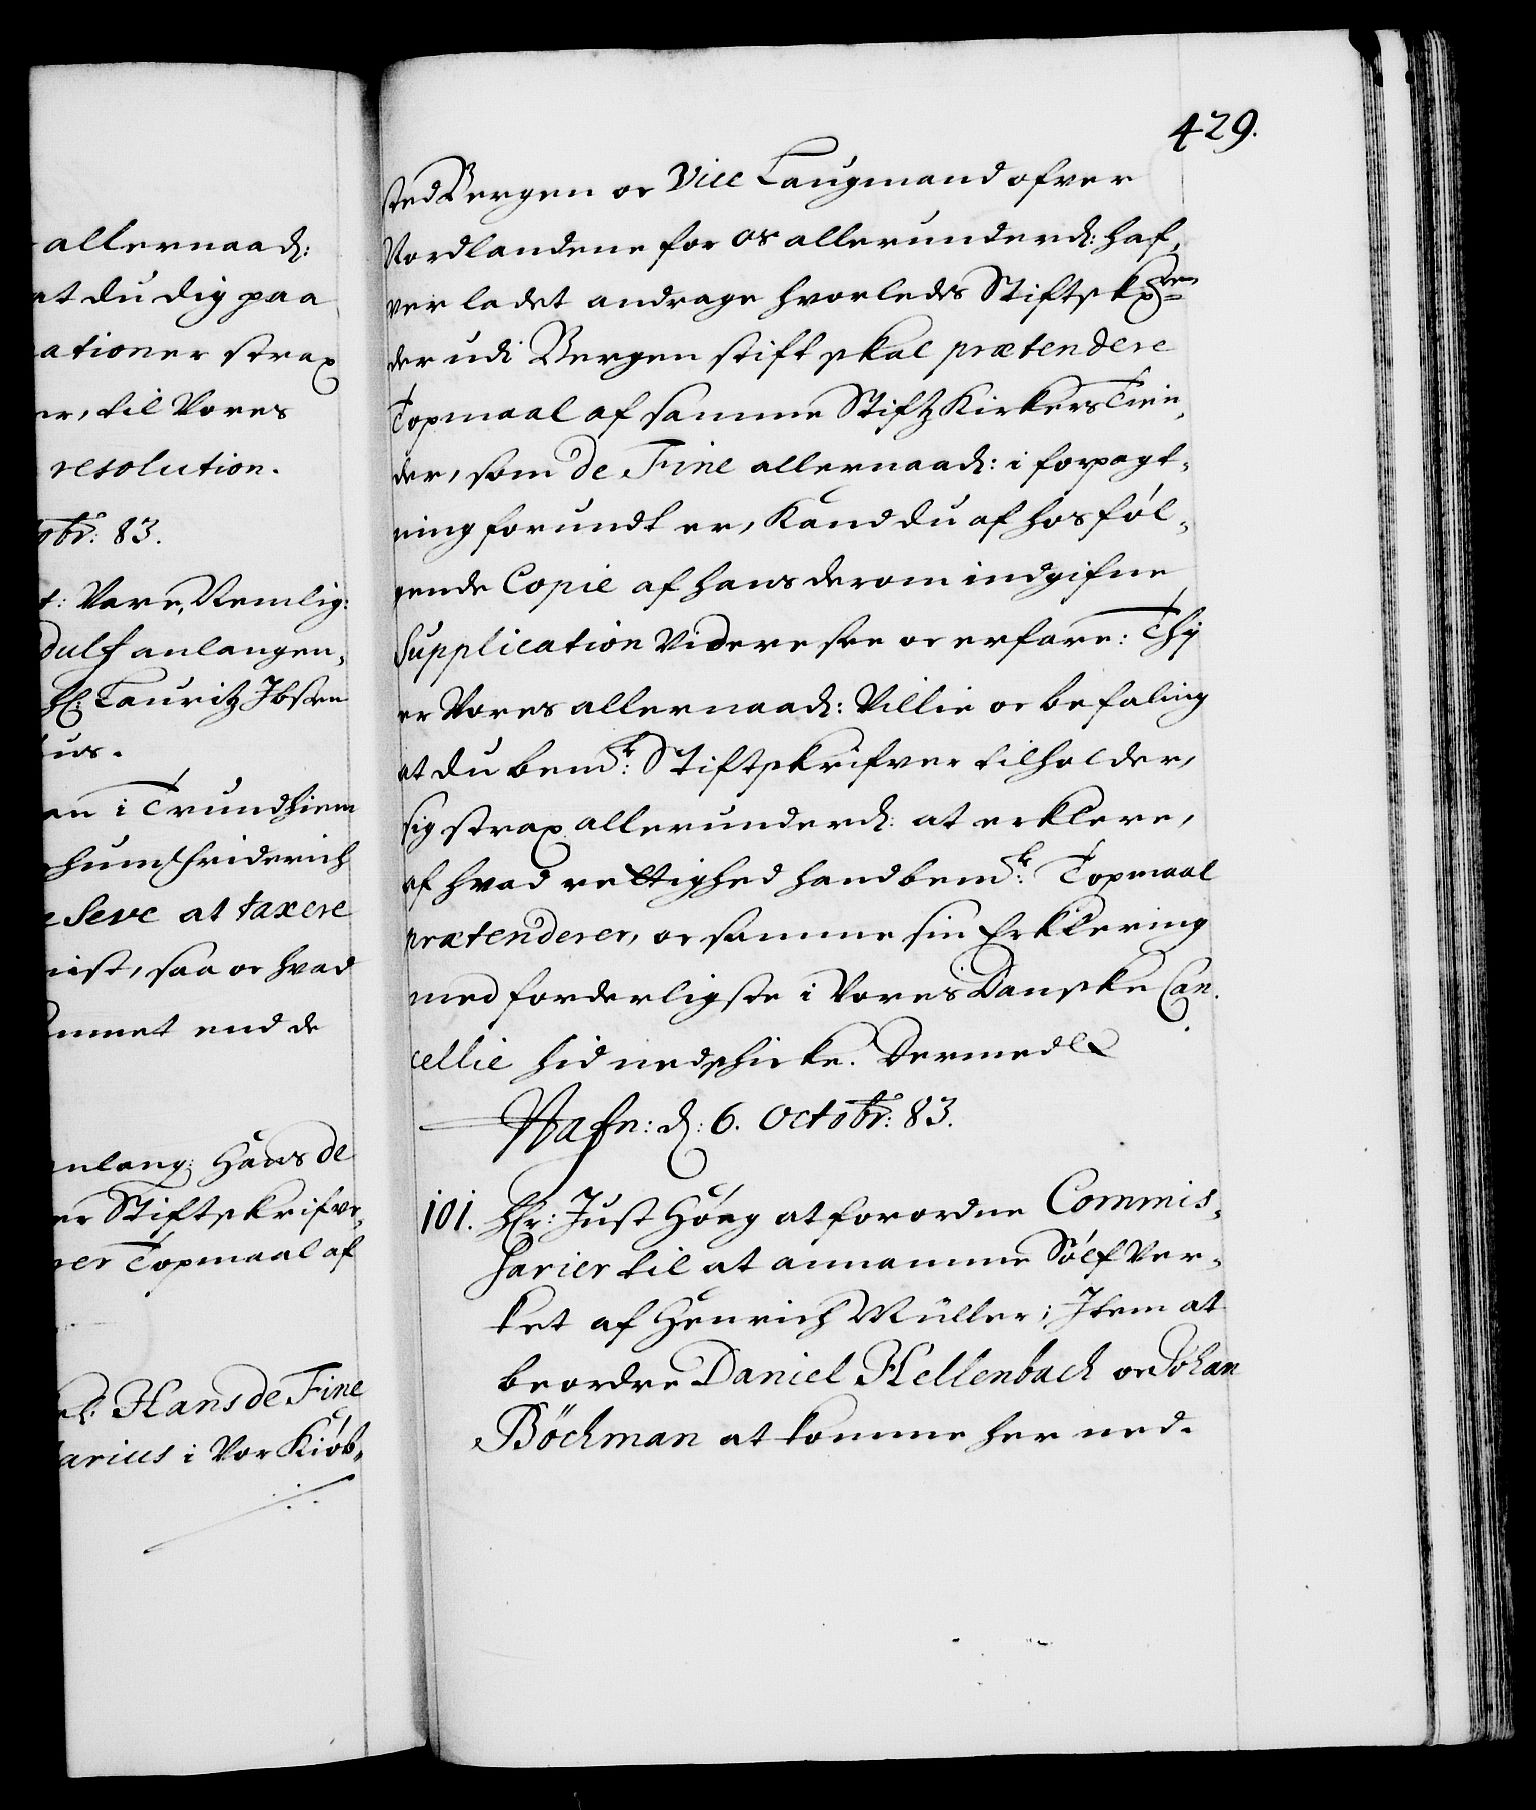 allernaad:
at du dig paa
ationer strax
er, til Vores
resolution.
obr: 83.
t: Vare, Nemlig:
dulf anlangen,
H: Lauritz Ibsen
us.
en i Trundhiem
hum Friderich
Seve at taxere
nist, saa oc hvad
ommet end de
anlang: Hans de
er Stiftskrifve,
rer Topmaal af
el: Hans de Fine
arius i Vor Kiøb,
429.
sted Bergen oc Vice Laugmand ofver
Nordlandene for os allerunderd: haf,
ver ladet andrage hvorledes Stiftskr:en
der udi Bergen stift skal prætendere
Topmaal af samme Stiftz Kirkers Tien,
der, som de Fine allernaad: i forpagt,
ning forundt er, Kand du af hosföl,
gende Copie af hans derom indgifne
Supplication Videre see oc erfare: Thj
er Vores allernaad: Villie oc befaling
at du bemt: Stiftskrifver tilholder,
sig strax allerunderd: at erklere,
af hvad rettighed hand bemt: Topmaal
prætenderer, oc samme sin Erklering
med forderligste i Vores Danske Can,
cellie hid nedschicke. Dermed &
Hafn: d: 6. Octobr: 83.
101. Hr: Just Höeg at forordne Commis,
sarier til at annamme Sölf Ver,
ket af Henrich Müller; Item at
beordre Daniel Hellenbach oc Johan
Böchman at komme her ned.